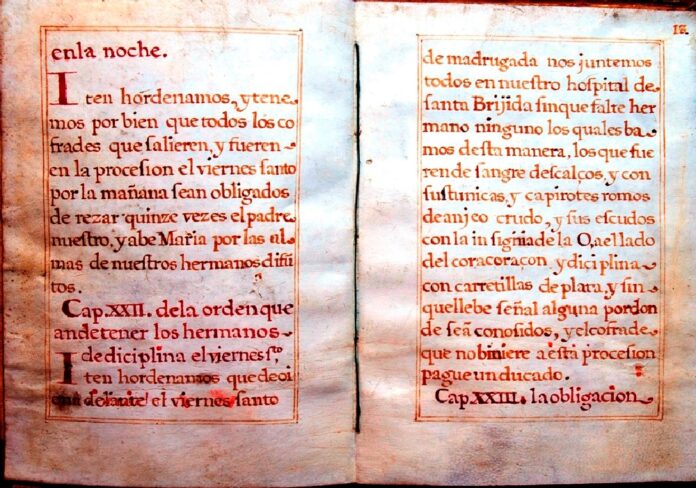 enla noche.
Iten hordenamos, y tene
mos por bien que todos los co
frades que salieren, y fueren
en la procesion el viernes santo
por la mañana sean obligados
de rezar quinze vezes el padre
nuestro, y abe Maria por las al
mas de nuestros hermanos difũ
tos.
Cap. XXII. dela orden que
an de tener los hermanos
de diciplina el viernes sto
Iten hordenamos que deoi
en a delante el viernes santo
13.
de madrugada nos juntemos
todos en nuestro hospital de
santa Brijida sin que falte her
mano ninguno los quales ba
mos desta manera, los que fue
ren de sangre descalços, y con
sus tunicas, y capirotes romos
de anjeo crudo, y sus escudos
con la insignia de la O, a el lado
del coracoraçon, y diciplina
con carretillas de plata, y sin
que llebe señal alguna por don
de seã conosidos, y el cofrade
que no biniere a esta procesion
pague un ducado.
Cap. XXIII. la obligacion